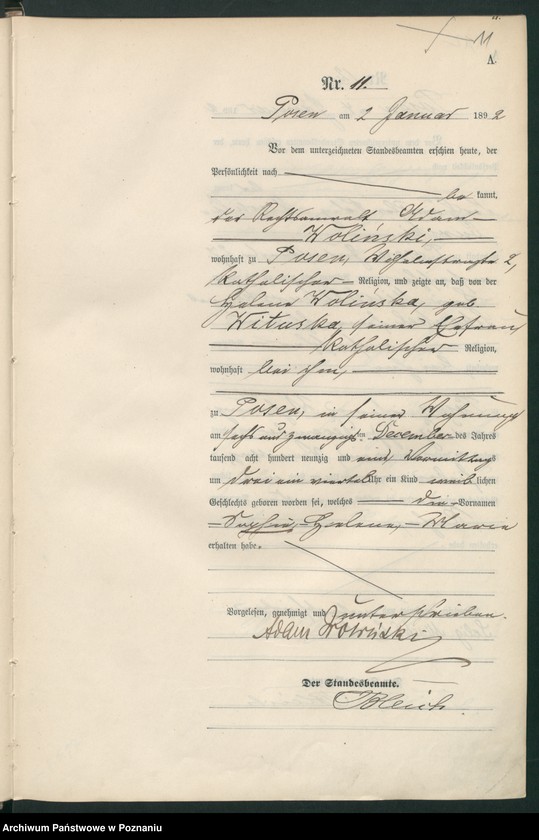 11
A.
Nr. 11.
Posen am 2 Januar 1892
Vor dem unterzeichneten Standesbeamten erschien heute, der
Persönlichkeit nach
be kannt,
der Rechtsanwalt Adam
Woliński,
wohnhaft zu Posen, Wilhelmstraße 2,
katholischer Religion, und zeigte an, daß von der
Helene Wolińska, geb.
Wituska, seiner Ehefrau,
katholischer Religion,
wohnhaft bei ihm,
zu Posen, in seiner Wohnung
am sechs und zwanzigsten Dezember des Jahres
tausend acht hundert neunzig und eins, Vormittags
um drei ein viertel Uhr ein Kind weiblichen
Geschlechts geboren worden sei, welches die Vornamen
Sophie, Helene, Maria
erhalten habe.
Vorgelesen, genehmigt und unterschrieben.
Adam Woliński
Der Standesbeamte.
Bleich.
Archiwum Państwowe w Poznaniu